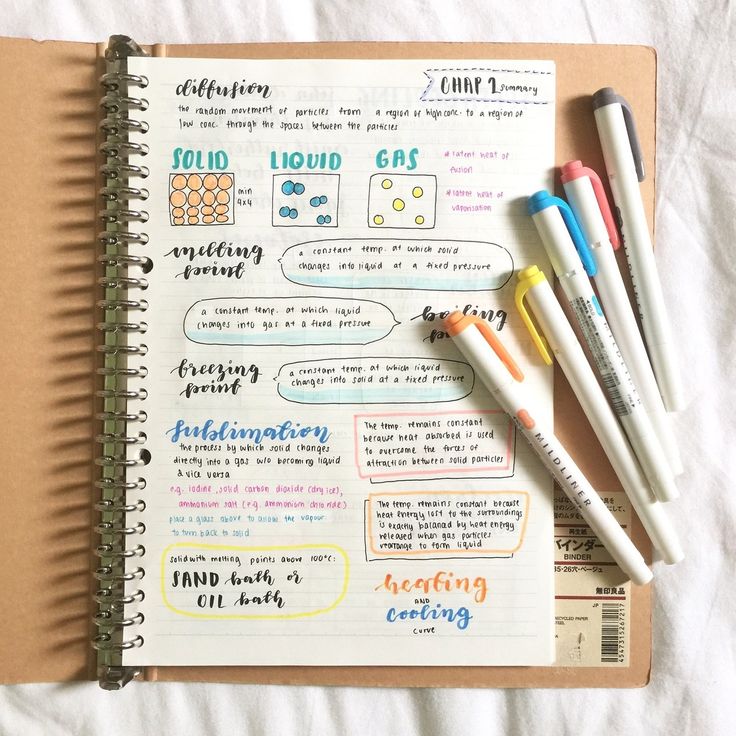 CHAP 1 summary
diffusion
the random movement of particles from a region of high conc. to a region of
low conc. through the spaces between the particles
SOLID
LIQUID
GAS
min
4x4
* latent heat of
fusion
* latent heat of
vaporisation
melting
point
a constant temp. at which solid
changes into liquid at a fixed pressure
a constant temp. at which liquid
changes into gas at a fixed pressure
boiling
freezing
point
a constant temp. at which liquid
changes into solid at a fixed pressure
sublimation
the process by which solid changes
directly into a gas w/o becoming liquid
& vice versa
e.g. iodine, solid carbon dioxide (dry ice),
ammonium salt (e.g. ammonium chloride)
place a glass above to allow the vapour
to turn back to solid
solid with melting points above 100°C:
SAND bath or
OIL bath
The temp. remains constant
because heat absorbed is used
to overcome the forces of
attraction between solid particles
The temp. remains constant because
heat energy lost to the surroundings
is exactly balanced by heat energy
released when gas particles
rearrange to form liquid
heating
AND
cooling
curve
MILDLINER
再生紙
バインダー
BINDER
B5・26穴・ベージュ
無印良品
JP
RECYCLED PAPER
4547315267217